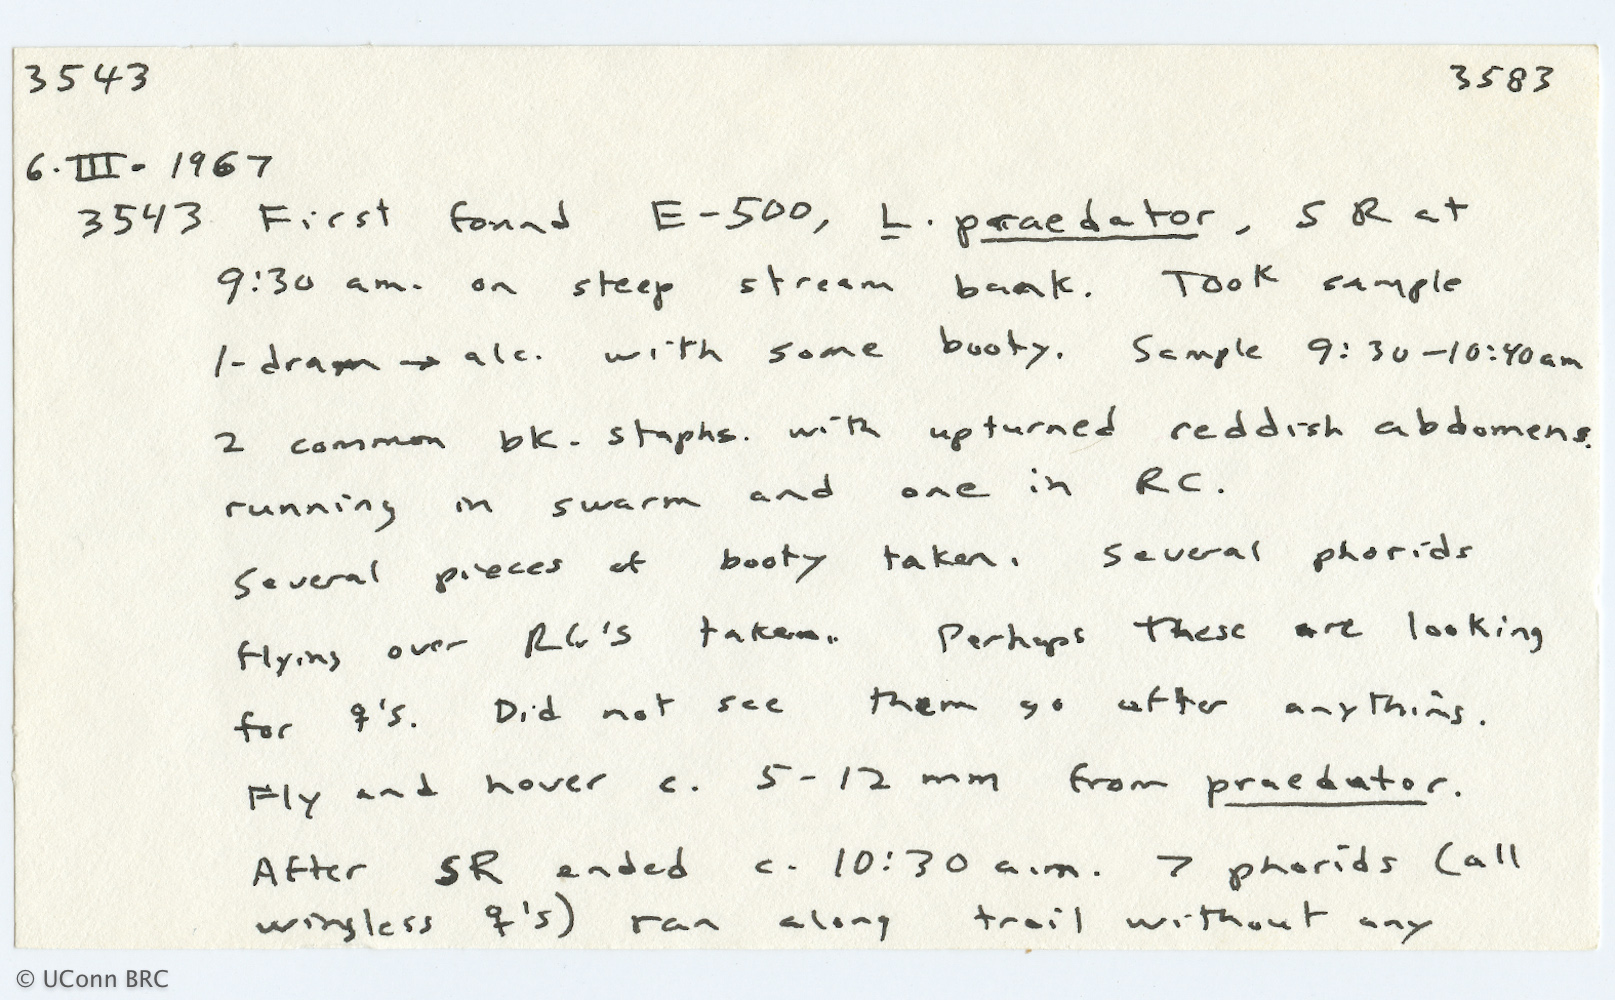 3543 3583
6.III-1967
3543 First found E-500, L. praedator, SR at
9:30 am. on steep stream bank. Took sample
1-dram → alc. with some booty. Sample 9:30-10:40am
2 common bk. staphs. with upturned reddish abdomens.
running in swarm and one in RC.
Several pieces of booty taken. Several phorids
flying over RC's taken. Perhaps these are looking
for ♀'s. Did not see them go after anything.
Fly and hover c. 5-12 mm from praedator.
After SR ended c. 10:30 a.m. 7 phorids (all
wingless ♀'s) ran along trail without any
© UConn BRC